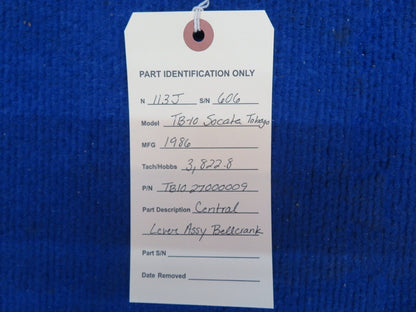 PART IDENTIFICATION ONLY
N 113J S/N 606
Model TB-10 Socata Tobago
MFG 1986
Tach/Hobbs 3,822.8
P/N TB10 27000009
Part Description Central
Lever Assy Bellcrank
Part S/N
Date Removed